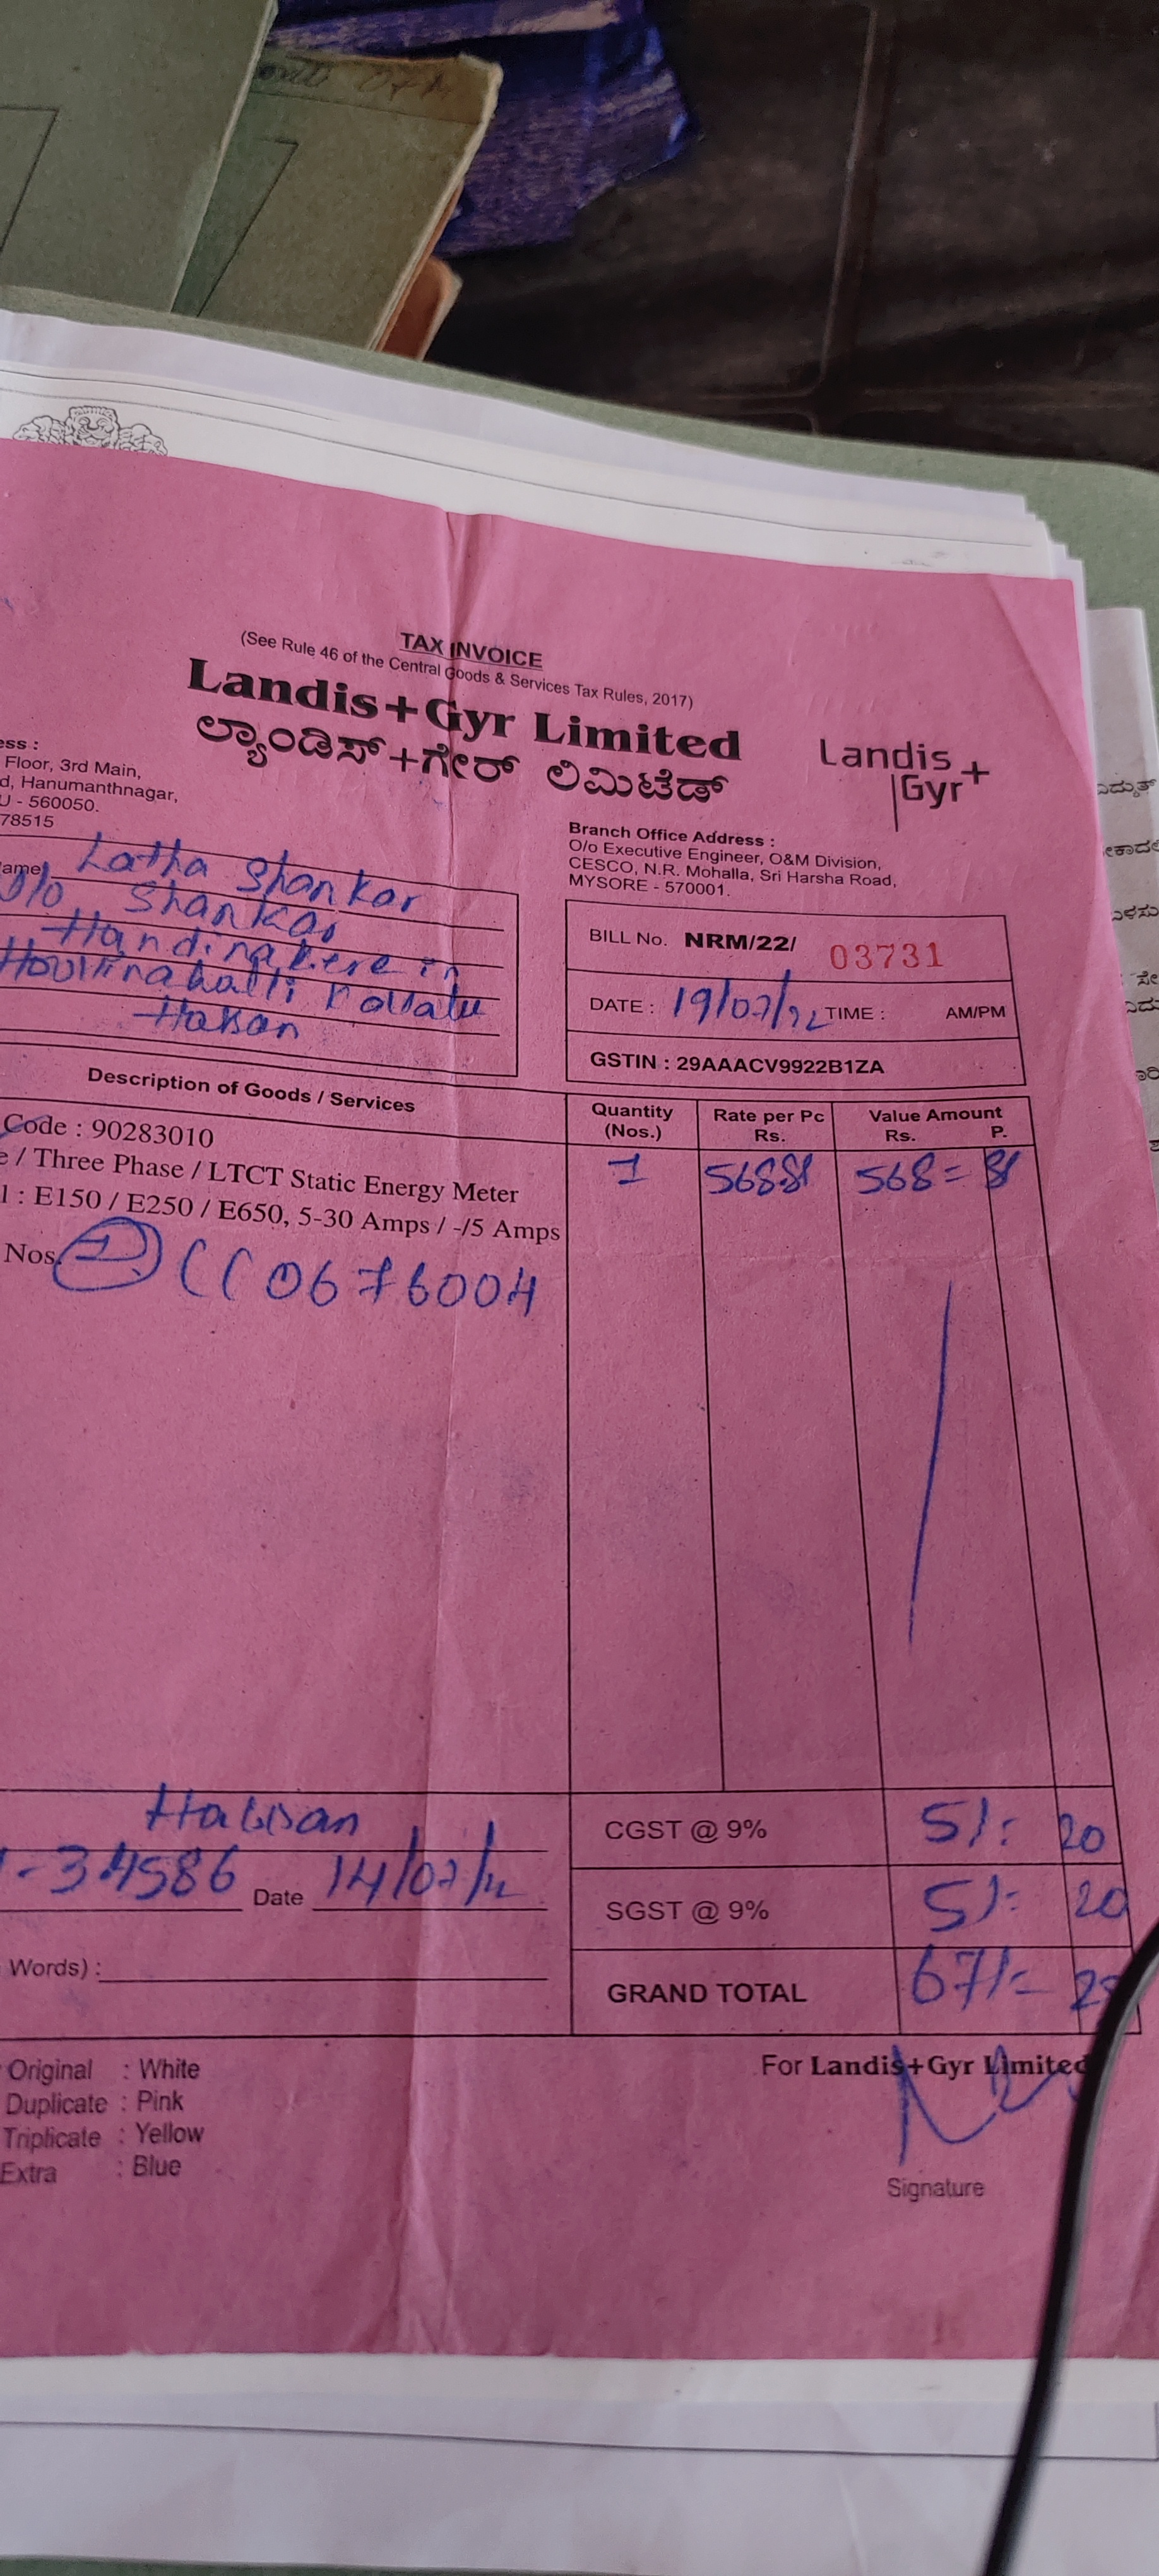 TAX INVOICE
(See Rule 46 of the Central Goods & Services Tax Rules, 2017)
Landis+Gyr Limited
ಲ್ಯಾಂಡಿಸ್+ಗೇರ್ ಲಿಮಿಟೆಡ್
Landis+
Gyr
ess :
Floor, 3rd Main,
d, Hanumanthnagar,
U - 560050.
78515
Branch Office Address :
O/o Executive Engineer, O&M Division,
CESCO, N.R. Mohalla, Sri Harsha Road,
MYSORE - 570001.
ame Latha Shankar
Shankar
Handinakere in
Hassan
BILL No. NRM/22/ 03731
DATE : 19/07/22 TIME : AM/PM
GSTIN : 29AAACV9922B1ZA
Description of Goods / Services
Quantity (Nos.) Rate per Pc Rs. Value Amount Rs. P.
Code : 90283010
e / Three Phase / LTCT Static Energy Meter 1 568.81 568= 81
l : E150 / E250 / E650, 5-30 Amps / -/5 Amps
Nos. 1 ((0676004
Hassan
CGST @ 9% 51= 20
-34586 Date 14/07/22
SGST @ 9% 51= 20
Words) :
GRAND TOTAL 671=
Original : White
Duplicate : Pink
Triplicate : Yellow
Extra : Blue
For Landis+Gyr Limited
Signature